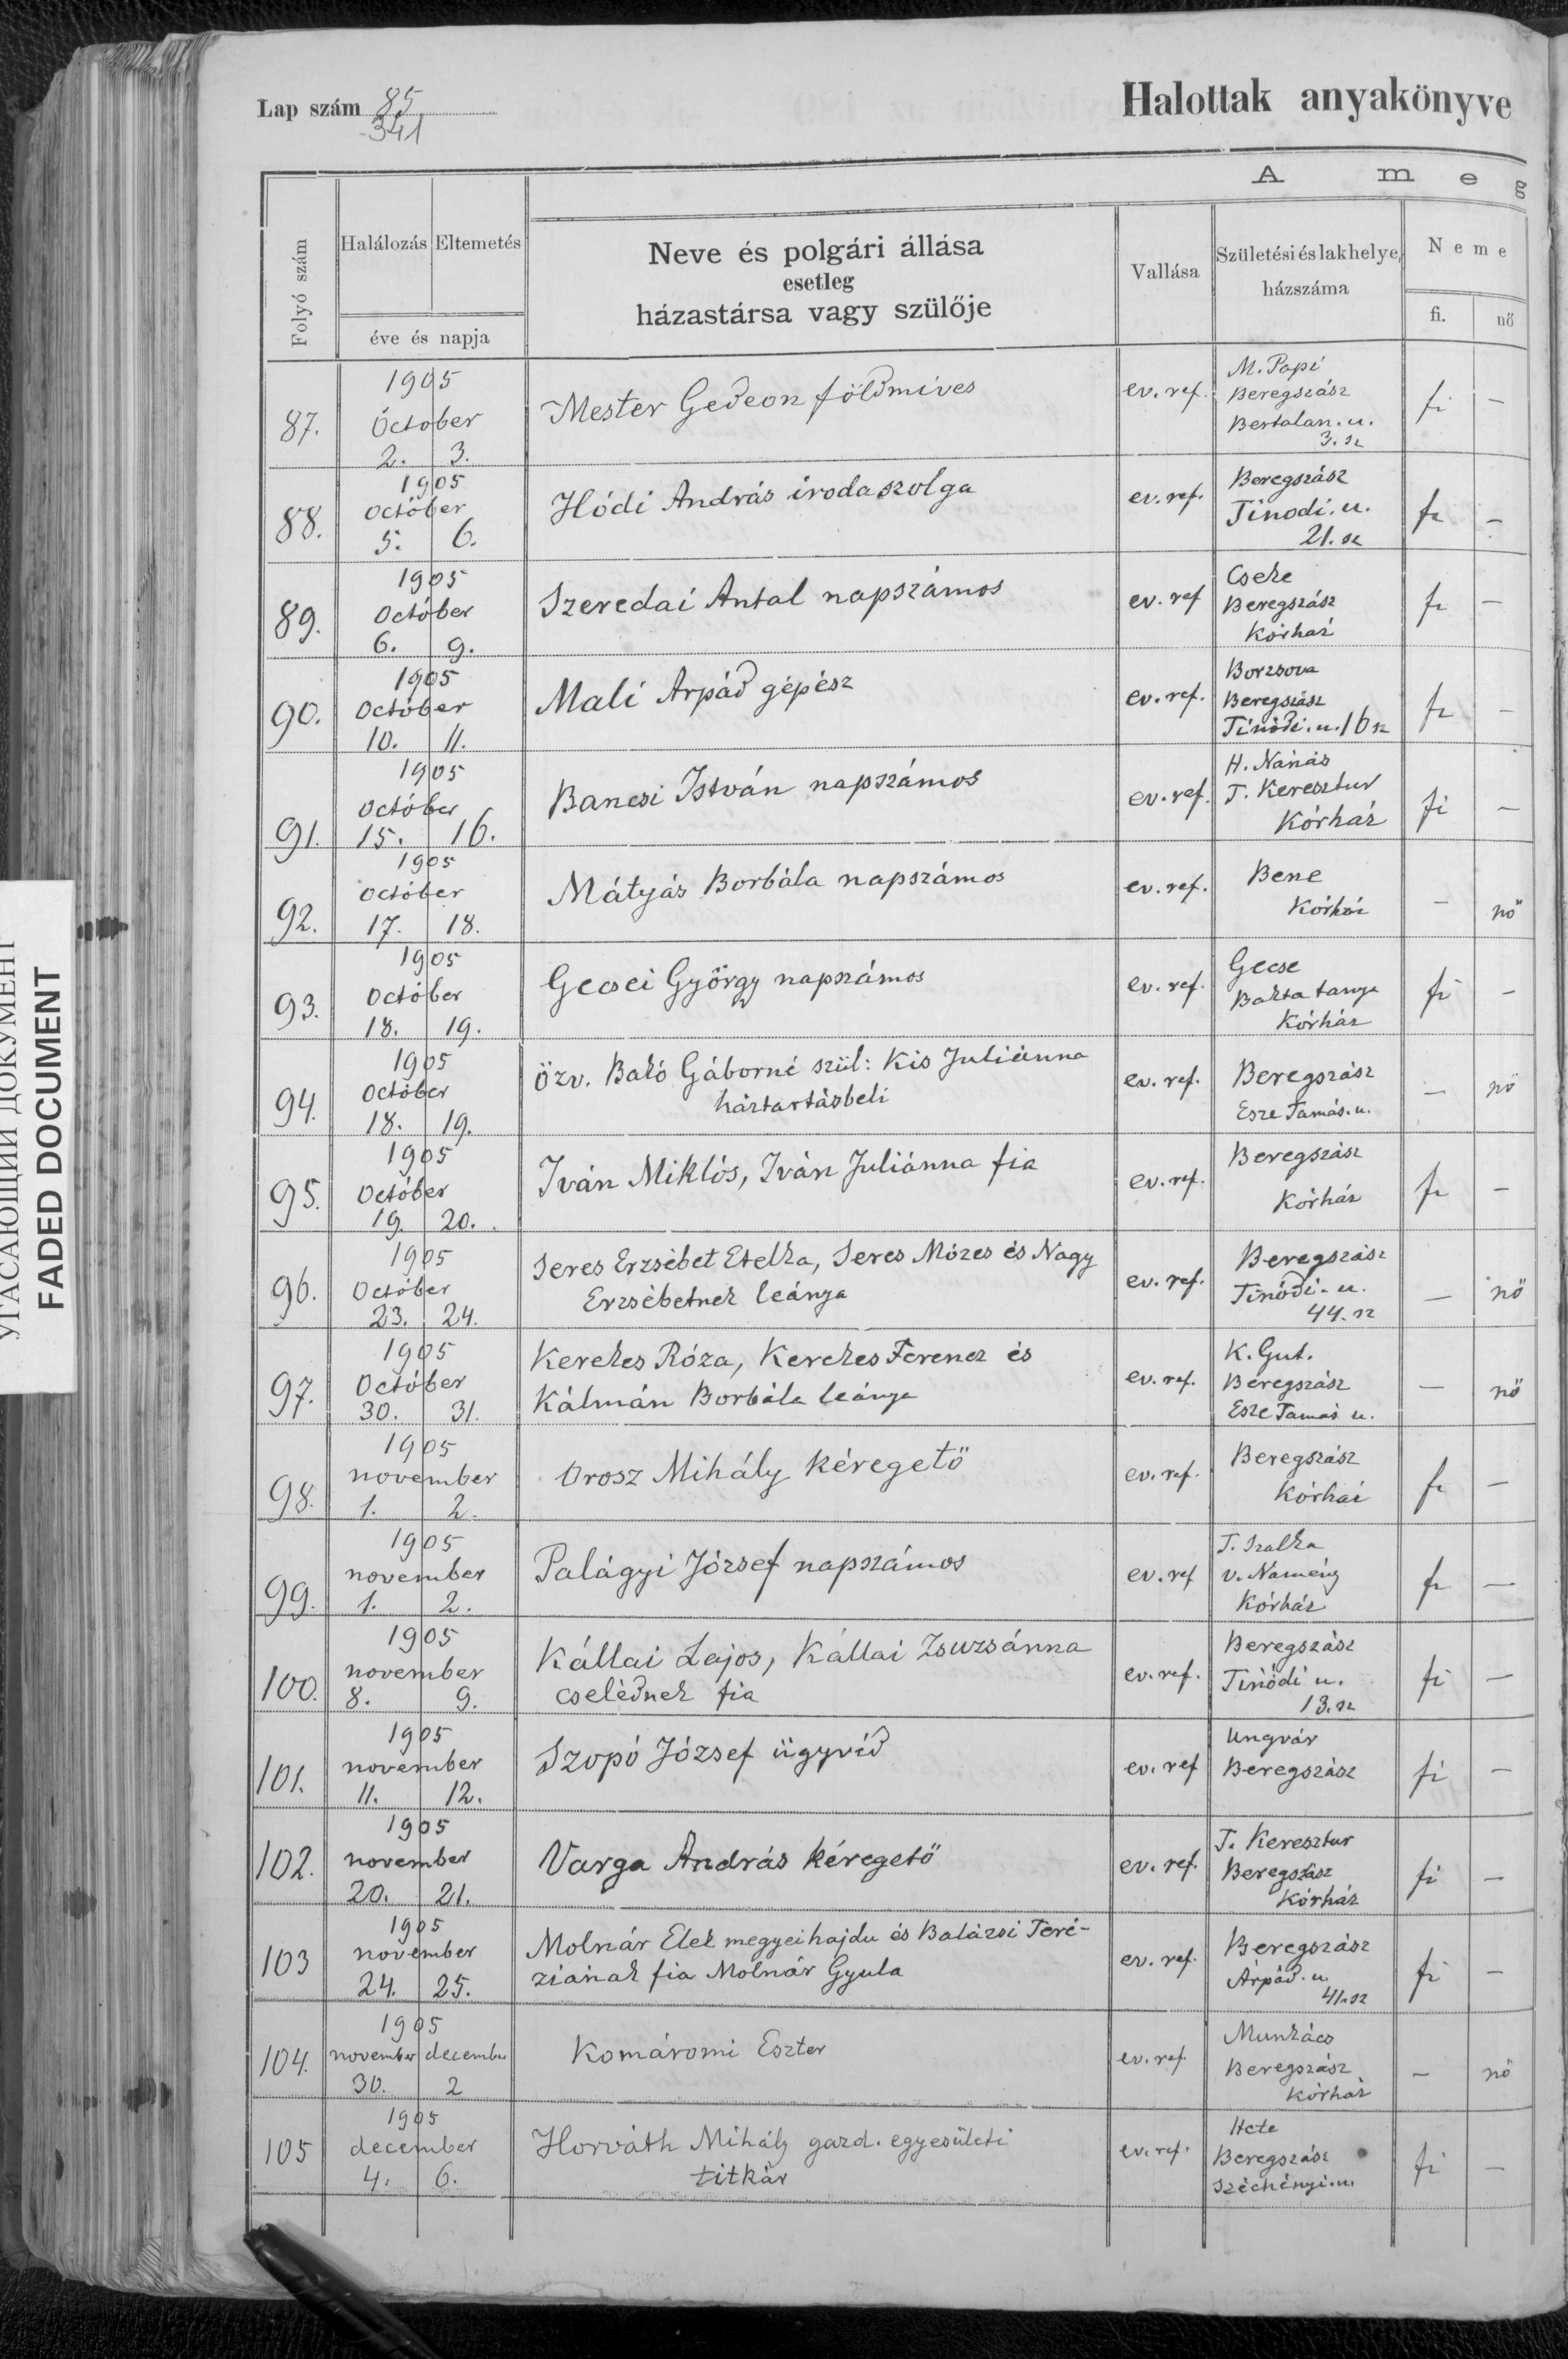 Lap szám 85
341
Halottak anyakönyve
A m e g
Folyó szám
Halálozás Eltemetés
éve és napja
Neve és polgári állása
esetleg
házastársa vagy szülője
Vallása
Születési és lakhelye,
házszáma
Neme
fi. nő
1905
87. October 2. 3. Mester Gedeon földmives ev. ref. M. Papi
Beregszász
Bertalan. u.
3. sz fi —
1905
88. October 5. 6. Hódi András irodaszolga ev. ref. Beregszász
Tinodi. u.
21. sz fi —
1905
89. October 6. 9. Szeredai Antal napszámos ev. ref Cseke
Beregszász
Kórház fi —
1905
90. October 10. 11. Mali Arpád gépész ev. ref. Borzsova
Beregszász
Tinódi. u. 16 sz fi —
1905
91. October 15. 16. Bancsi István napszámos ev. ref. H. Nánás
T. Keresztur
Kórház fi —
1905
92. October 17. 18. Mátyás Borbála napszámos ev. ref. Bene
Kórház — nő
1905
93. October 18. 19. Gecsei György napszámos ev. ref. Gecse
Bakta tanya
Kórház fi —
1905
94. October 18. 19. Özv. Bakó Gáborné szül: Kis Juliánna
háztartásbeli ev. ref. Beregszász
Esze Tamás. u. — nő
1905
95. October 19. 20. Iván Miklós, Iván Juliánna fia ev. ref. Beregszász
Kórház fi —
1905
96. October 23. 24. Seres Erzsébet Etelka, Seres Mózes és Nagy
Erzsébetnek leánya ev. ref. Beregszász
Tinódi. u.
44. sz — nő
1905
97. October 30. 31. Kerekes Róza, Kerekes Ferencz és
Kálmán Borbála leánya ev. ref. K. Gut.
Beregszász
Esze Tamás u. — nő
1905
98. november 1. 2. Orosz Mihály kéregető ev. ref. Beregszász
Kórház fi —
1905
99. november 1. 2. Palágyi József napszámos ev. ref T. Szalka
v. Namény
Kórház fi —
1905
100. november 8. 9. Kállai Lajos, Kállai Zsuzsánna
cselédnek fia ev. ref. Beregszász
Tinódi u.
13. sz fi —
1905
101. november 11. 12. Szopó József ügyvéd ev. ref Ungvár
Beregszász fi —
1905
102. november 20. 21. Varga András kéregető ev. ref. T. Keresztur
Beregszász
Kórház fi —
1905
103 november 24. 25. Molnár Elek megyei hajdu és Balázsi Teré-
ziának fia Molnár Gyula ev. ref. Beregszász
Árpád. u.
41. sz fi —
1905
104. november december 30. 2 Komáromi Eszter ev. ref. Munkács
Beregszász
Kórház — nő
1905
105 december 4. 6. Horváth Mihály gazd. egyesületi
titkár ev. ref. Hete
Beregszász
Széchényi. u. fi —
УГАСАЮЩИЙ ДОКУМЕНТ
FADED DOCUMENT